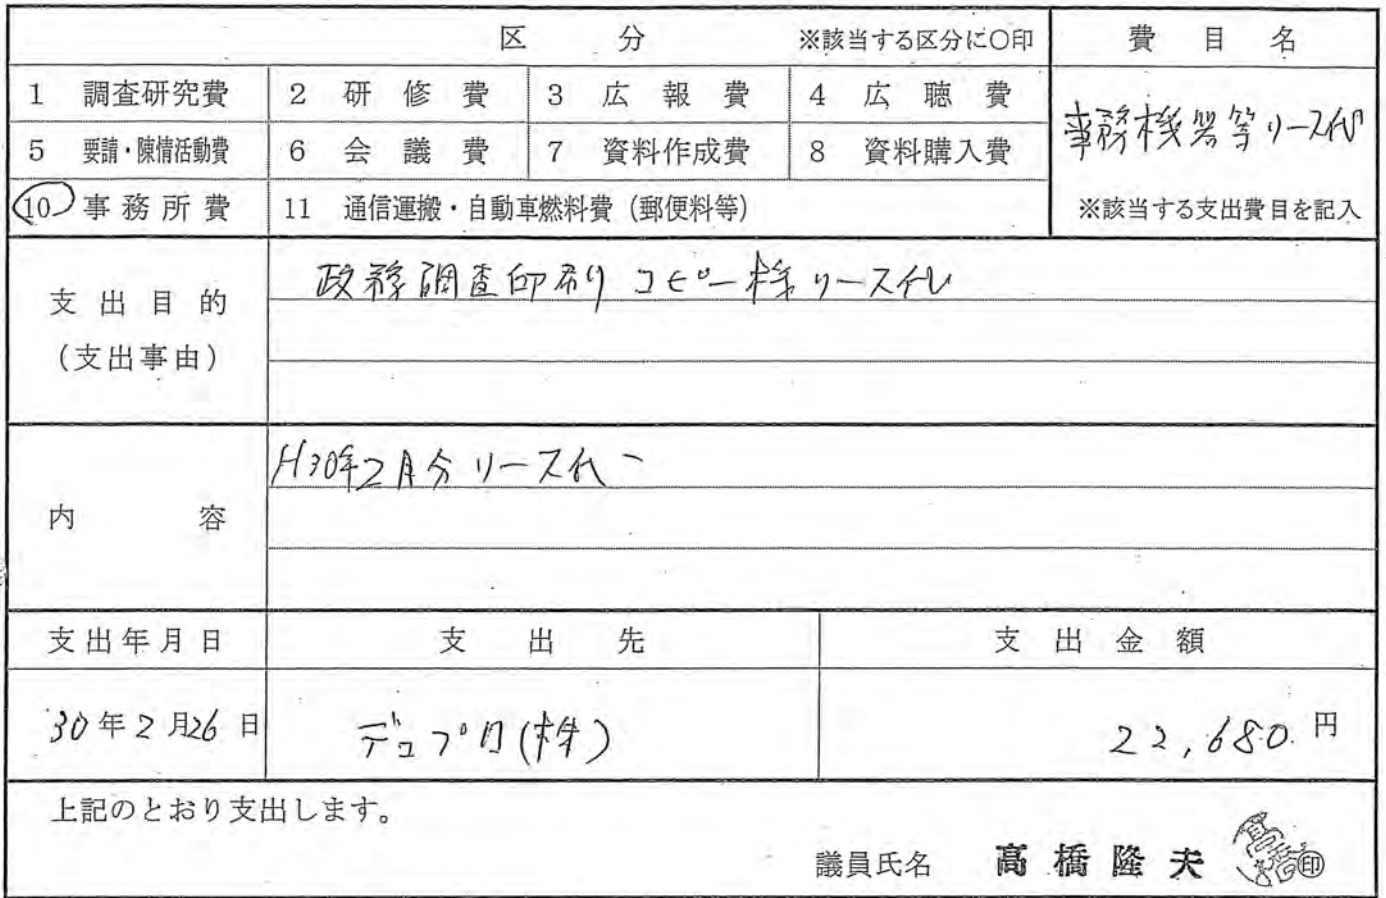 区 分 ※該当する区分に○印 費 目 名
1 調査研究費 2 研 修 費 3 広 報 費 4 広 聴 費
事務機器等リース代
5 要請・陳情活動費 6 会 議 費 7 資料作成費 8 資料購入費
10 事務所費 11 通信運搬・自動車燃料費（郵便料等） ※該当する支出費目を記入
政務調査印刷コピー機リース代
支出目的
（支出事由）
H30年2月分リース代
内 容
支出年月日 支 出 先 支 出 金 額
30年2月26日 デュプロ(株) 22,680.円
上記のとおり支出します。
議員氏名 髙橋隆夫 印